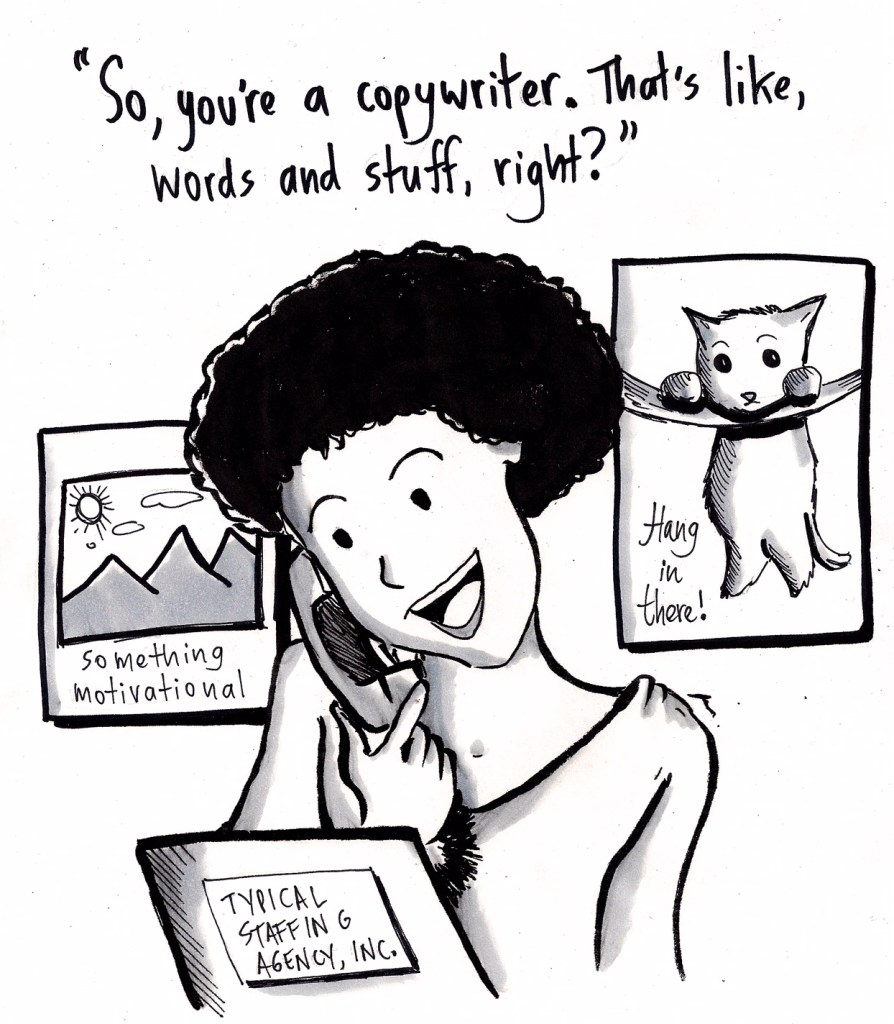 "So, you're a copywriter. That's like,
words and stuff, right?"
something
motivational
Hang
in
there!
TYPICAL
STAFFING
AGENCY, INC.